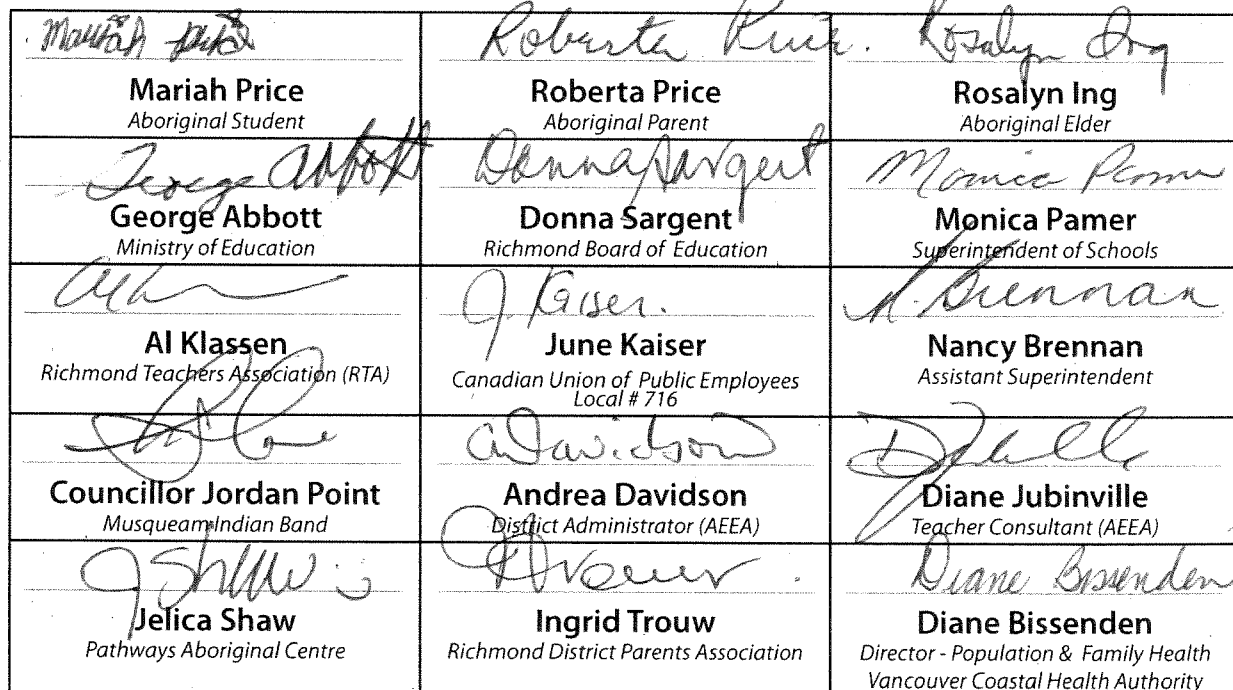 Mariah Price Roberta Price. Rosalyn Ing
Mariah Price
Aboriginal Student
Roberta Price
Aboriginal Parent
Rosalyn Ing
Aboriginal Elder
George Abbott Donna Sargent Monica Pamer
George Abbott
Ministry of Education
Donna Sargent
Richmond Board of Education
Monica Pamer
Superintendent of Schools
J Kaiser. N. Brennan
Al Klassen
Richmond Teachers Association (RTA)
June Kaiser
Canadian Union of Public Employees
Local # 716
Nancy Brennan
Assistant Superintendent
A Davidson
Councillor Jordan Point
Musqueam Indian Band
Andrea Davidson
District Administrator (AEEA)
Diane Jubinville
Teacher Consultant (AEEA)
J Shaw Diane Bissenden
Jelica Shaw
Pathways Aboriginal Centre
Ingrid Trouw
Richmond District Parents Association
Diane Bissenden
Director - Population & Family Health
Vancouver Coastal Health Authority